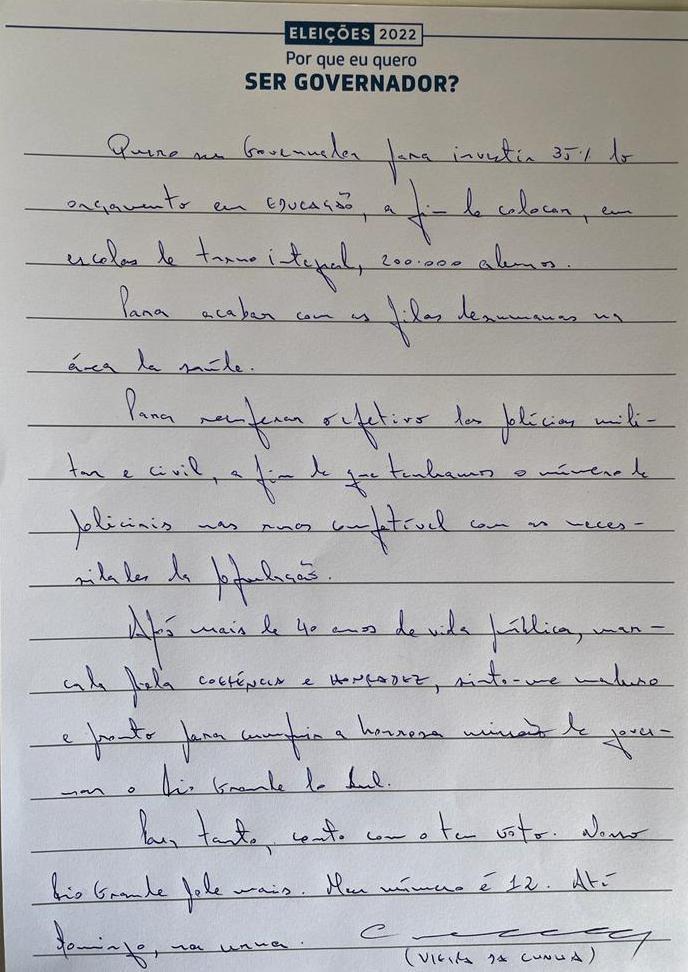 ELEIÇÕES 2022
Por que eu quero
SER GOVERNADOR?
Quero ser Governador para investir 35% do
orçamento em EDUCAÇÃO, a fim de colocar, em
escolas de turno integral, 200.000 alunos.
Para acabar com as filas desumanas na
área da saúde.
Para recuperar o efetivo das polícias mili-
tar e civil, a fim de que tenhamos o número de
policiais nas ruas compatível com as neces-
sidades da população.
Após mais de 40 anos de vida pública, mar-
cada pela COERÊNCIA e HONRADEZ, sinto-me maduro
e pronto para cumprir a honrosa missão de gover-
nar o Rio Grande do Sul.
Para tanto, conto com o teu voto. Nosso
Rio Grande pode mais. Meu número é 12. Até
domingo, na urna.
(VIEIRA DA CUNHA)